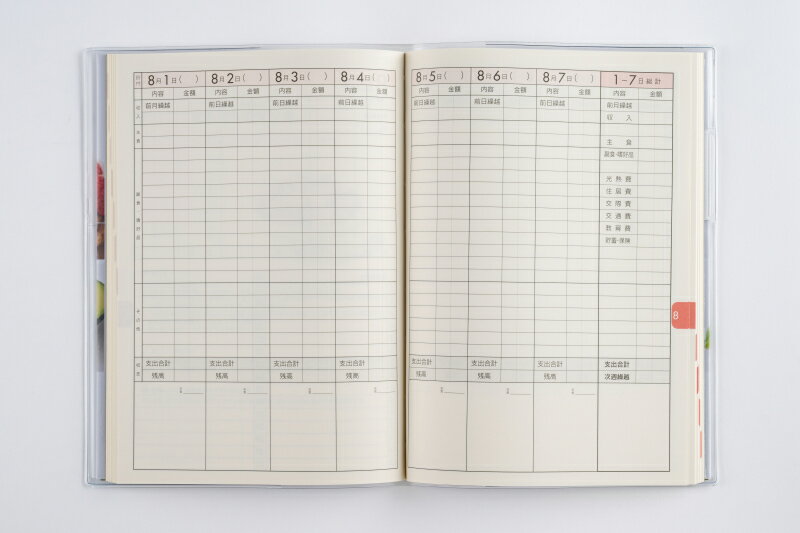 8月1日( ) 8月2日( ) 8月3日( ) 8月4日( )
内容 金額 内容 金額 内容 金額 内容 金額
前月繰越 前日繰越 前日繰越 前日繰越
収入
主食
副食・嗜好品
その他
支出合計 支出合計 支出合計 支出合計
残高 残高 残高 残高
8月5日( ) 8月6日( ) 8月7日( ) 1〜7日総計
内容 金額 内容 金額 内容 金額 内容 金額
前日繰越 前日繰越 前日繰越 前日繰越
収入
主食
副食・嗜好品
光熱費
住居費
交際費
交通費
教育費
貯蓄・保険
8
支出合計 支出合計 支出合計 支出合計
残高 残高 残高 次週繰越